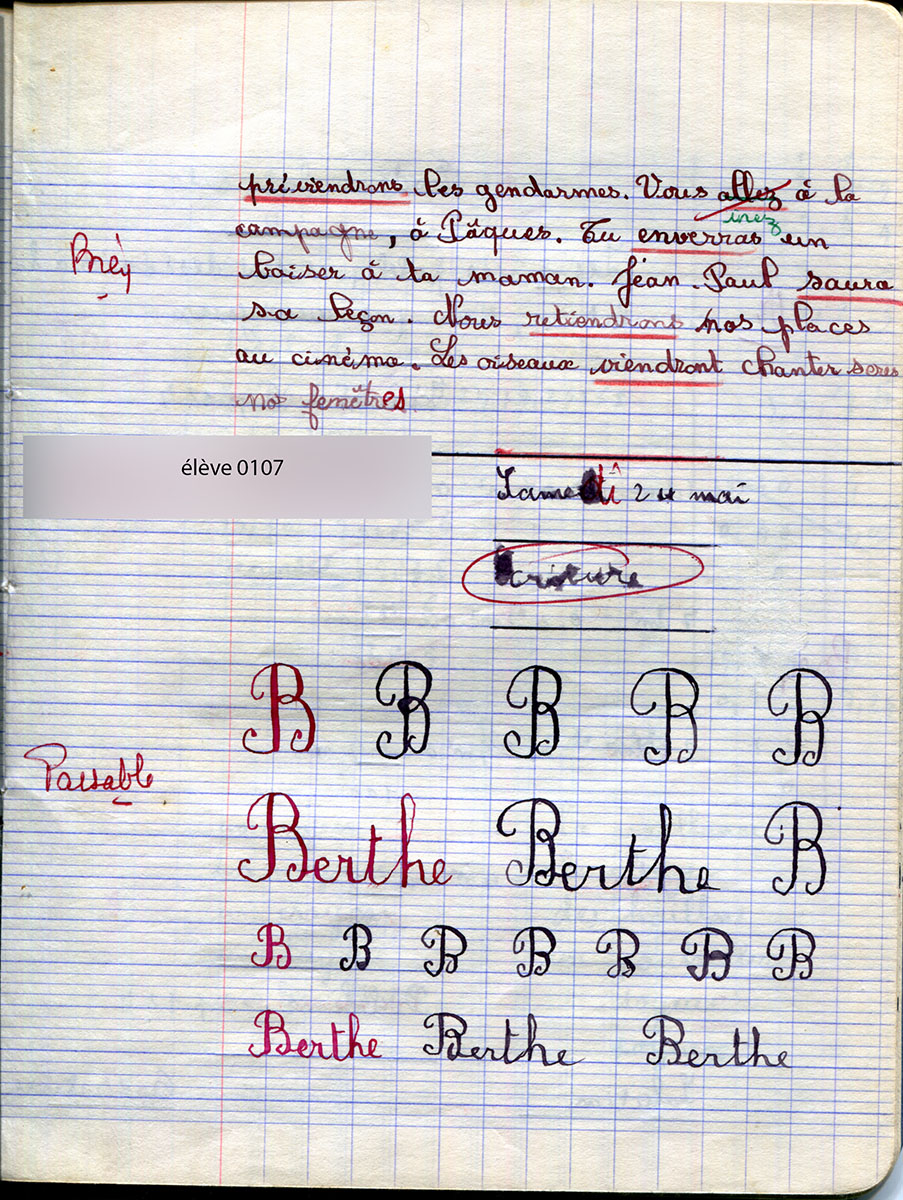 préviendrons les gendarmes. Vous allez à la
irez
campagne, à Pâques. Tu enverras un
baiser à ta maman. Jean-Paul saura
sa leçon. Nous retiendrons nos places
au cinéma. Les oiseaux viendront chanter sous
nos femêtres
élève 0107
Samedi 24 mai
Ecriture
B B B B B
Passable
Berthe Berthe B
B B B B B B B
Berthe Berthe Berthe